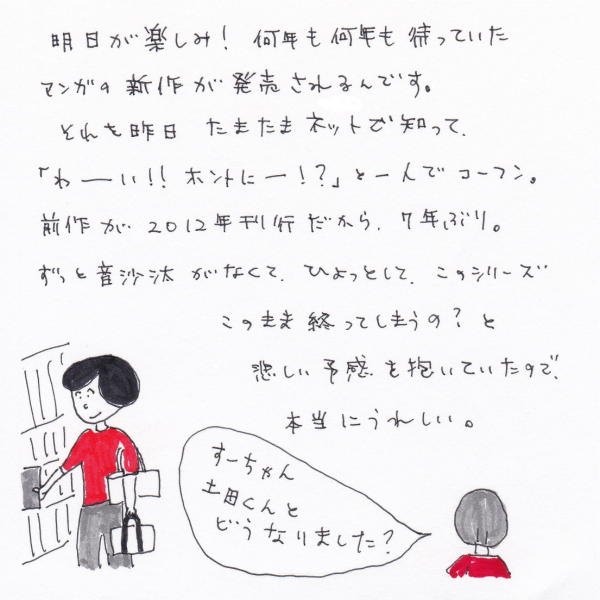 明日が楽しみ! 何年も何年も待っていた
マンガの新作が発売されるんです。
それを昨日 たまたまネットで知って、
「わーい!! ホントにー!?」と一人でコーフン。
前作が2012年刊行だから、7年ぶり。
ずっと音沙汰がなくて、ひょっとして、このシリーズ
このまま終ってしまうの?と
悲しい予感を抱いていたので、
本当にうれしい。
すーちゃん
土田くんと
どうなりました?